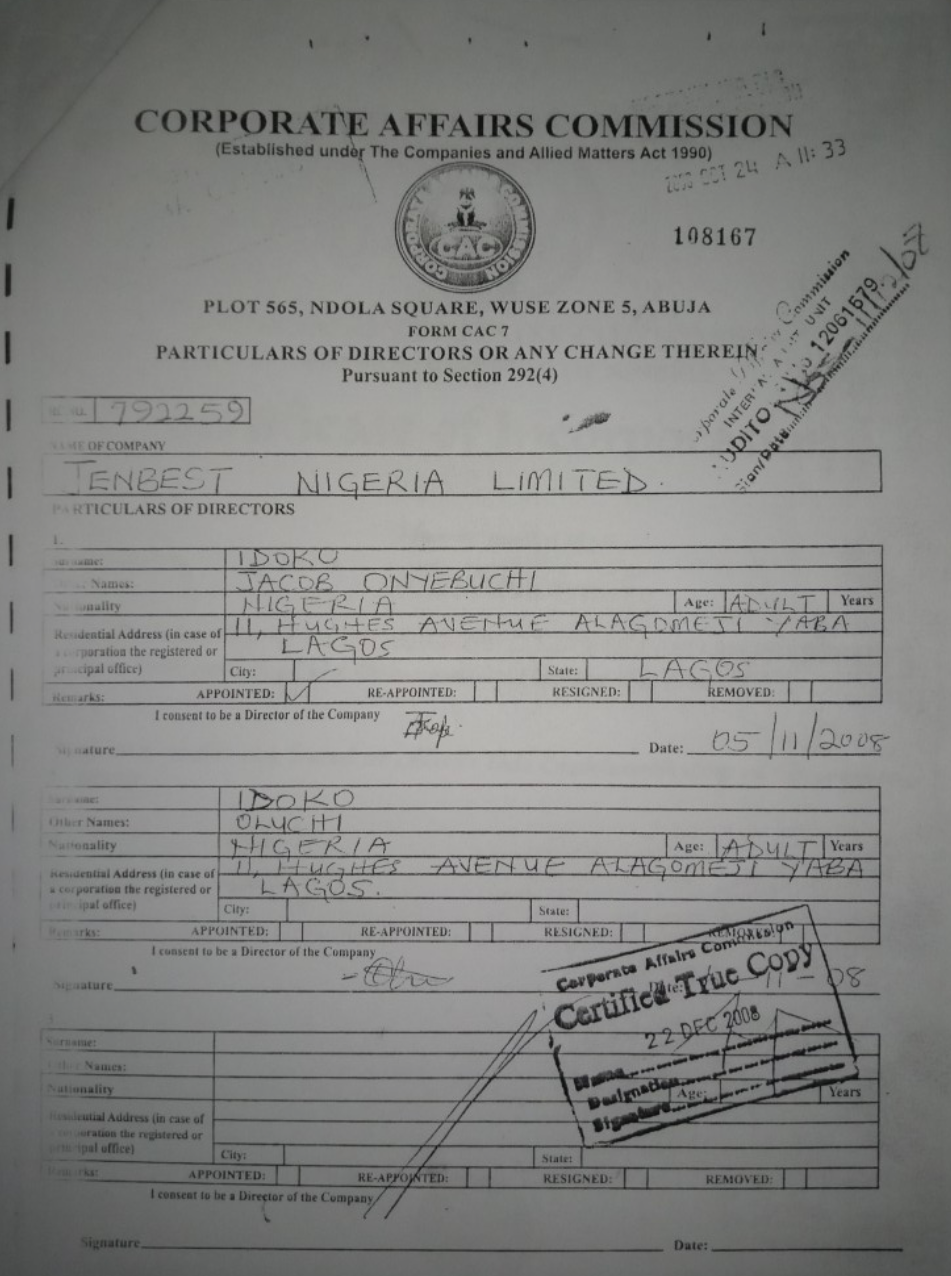 CORPORATE AFFAIRS COMMISSION
(Established under The Companies and Allied Matters Act 1990)
OCT 24 A 11: 33
CAC
108167
PLOT 565, NDOLA SQUARE, WUSE ZONE 5, ABUJA
FORM CAC 7
PARTICULARS OF DIRECTORS OR ANY CHANGE THEREIN
Pursuant to Section 292(4)
Commission
UNIT
12061579
Sign/Date
792259
NAME OF COMPANY
JENBEST NIGERIA LIMITED.
PARTICULARS OF DIRECTORS
1.
Surname: IDOKO
Other Names: JACOB ONYEBUCHI
Nationality NIGERIA Age: ADULT Years
Residential Address (in case of 11, HUGHES AVENUE ALAGOMEJI YABA
a corporation the registered or LAGOS
principal office) City: State: LAGOS
Remarks: APPOINTED: ✓ RE-APPOINTED: RESIGNED: REMOVED:
I consent to be a Director of the Company
Signature Date: 05/11/2008
Surname: IDOKO
Other Names: OLUCHI
Nationality NIGERIA Age: ADULT Years
Residential Address (in case of 11, HUGHES AVENUE ALAGOMEJI YABA
a corporation the registered or LAGOS.
principal office) City: State:
Remarks: APPOINTED: RE-APPOINTED: RESIGNED: REMOVED:
I consent to be a Director of the Company
Signature Date: 11-08
Corporate Affairs Commission
Certified True Copy
22 DEC 2008
Name
Designation
Signature
Surname:
Other Names:
Nationality Age: Years
Residential Address (in case of
a corporation the registered or
principal office) City: State:
Remarks: APPOINTED: RE-APPOINTED: RESIGNED: REMOVED:
I consent to be a Director of the Company
Signature Date: